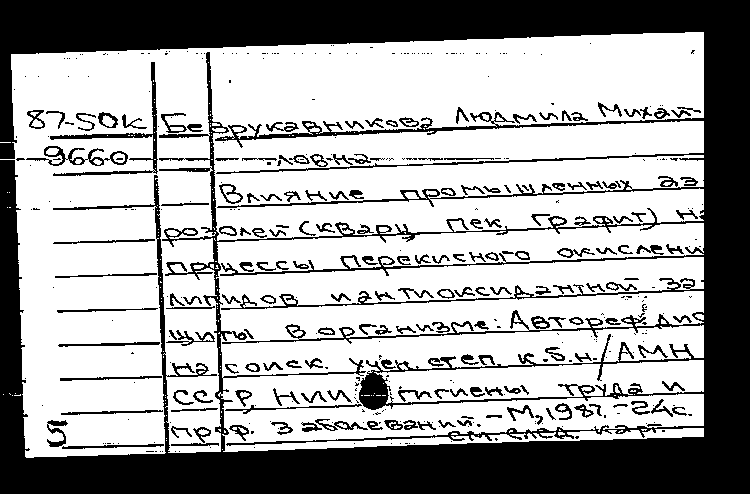 87-5ОК Безрукавникова Людмила Михай-
9660 ловна
Влияние промышленных аэ
розолей (кварц, пек, графит) на
процессы перекисного окислени
липидов и антиоксидантной за-
щиты в организме: Автореф. дис
на соиск. учен. степ. к.б.н./АМН
СССР, НИИ гигиены труда и
проф. заболеваний. - М, 1987. - 24с.
5 см. след. карт.